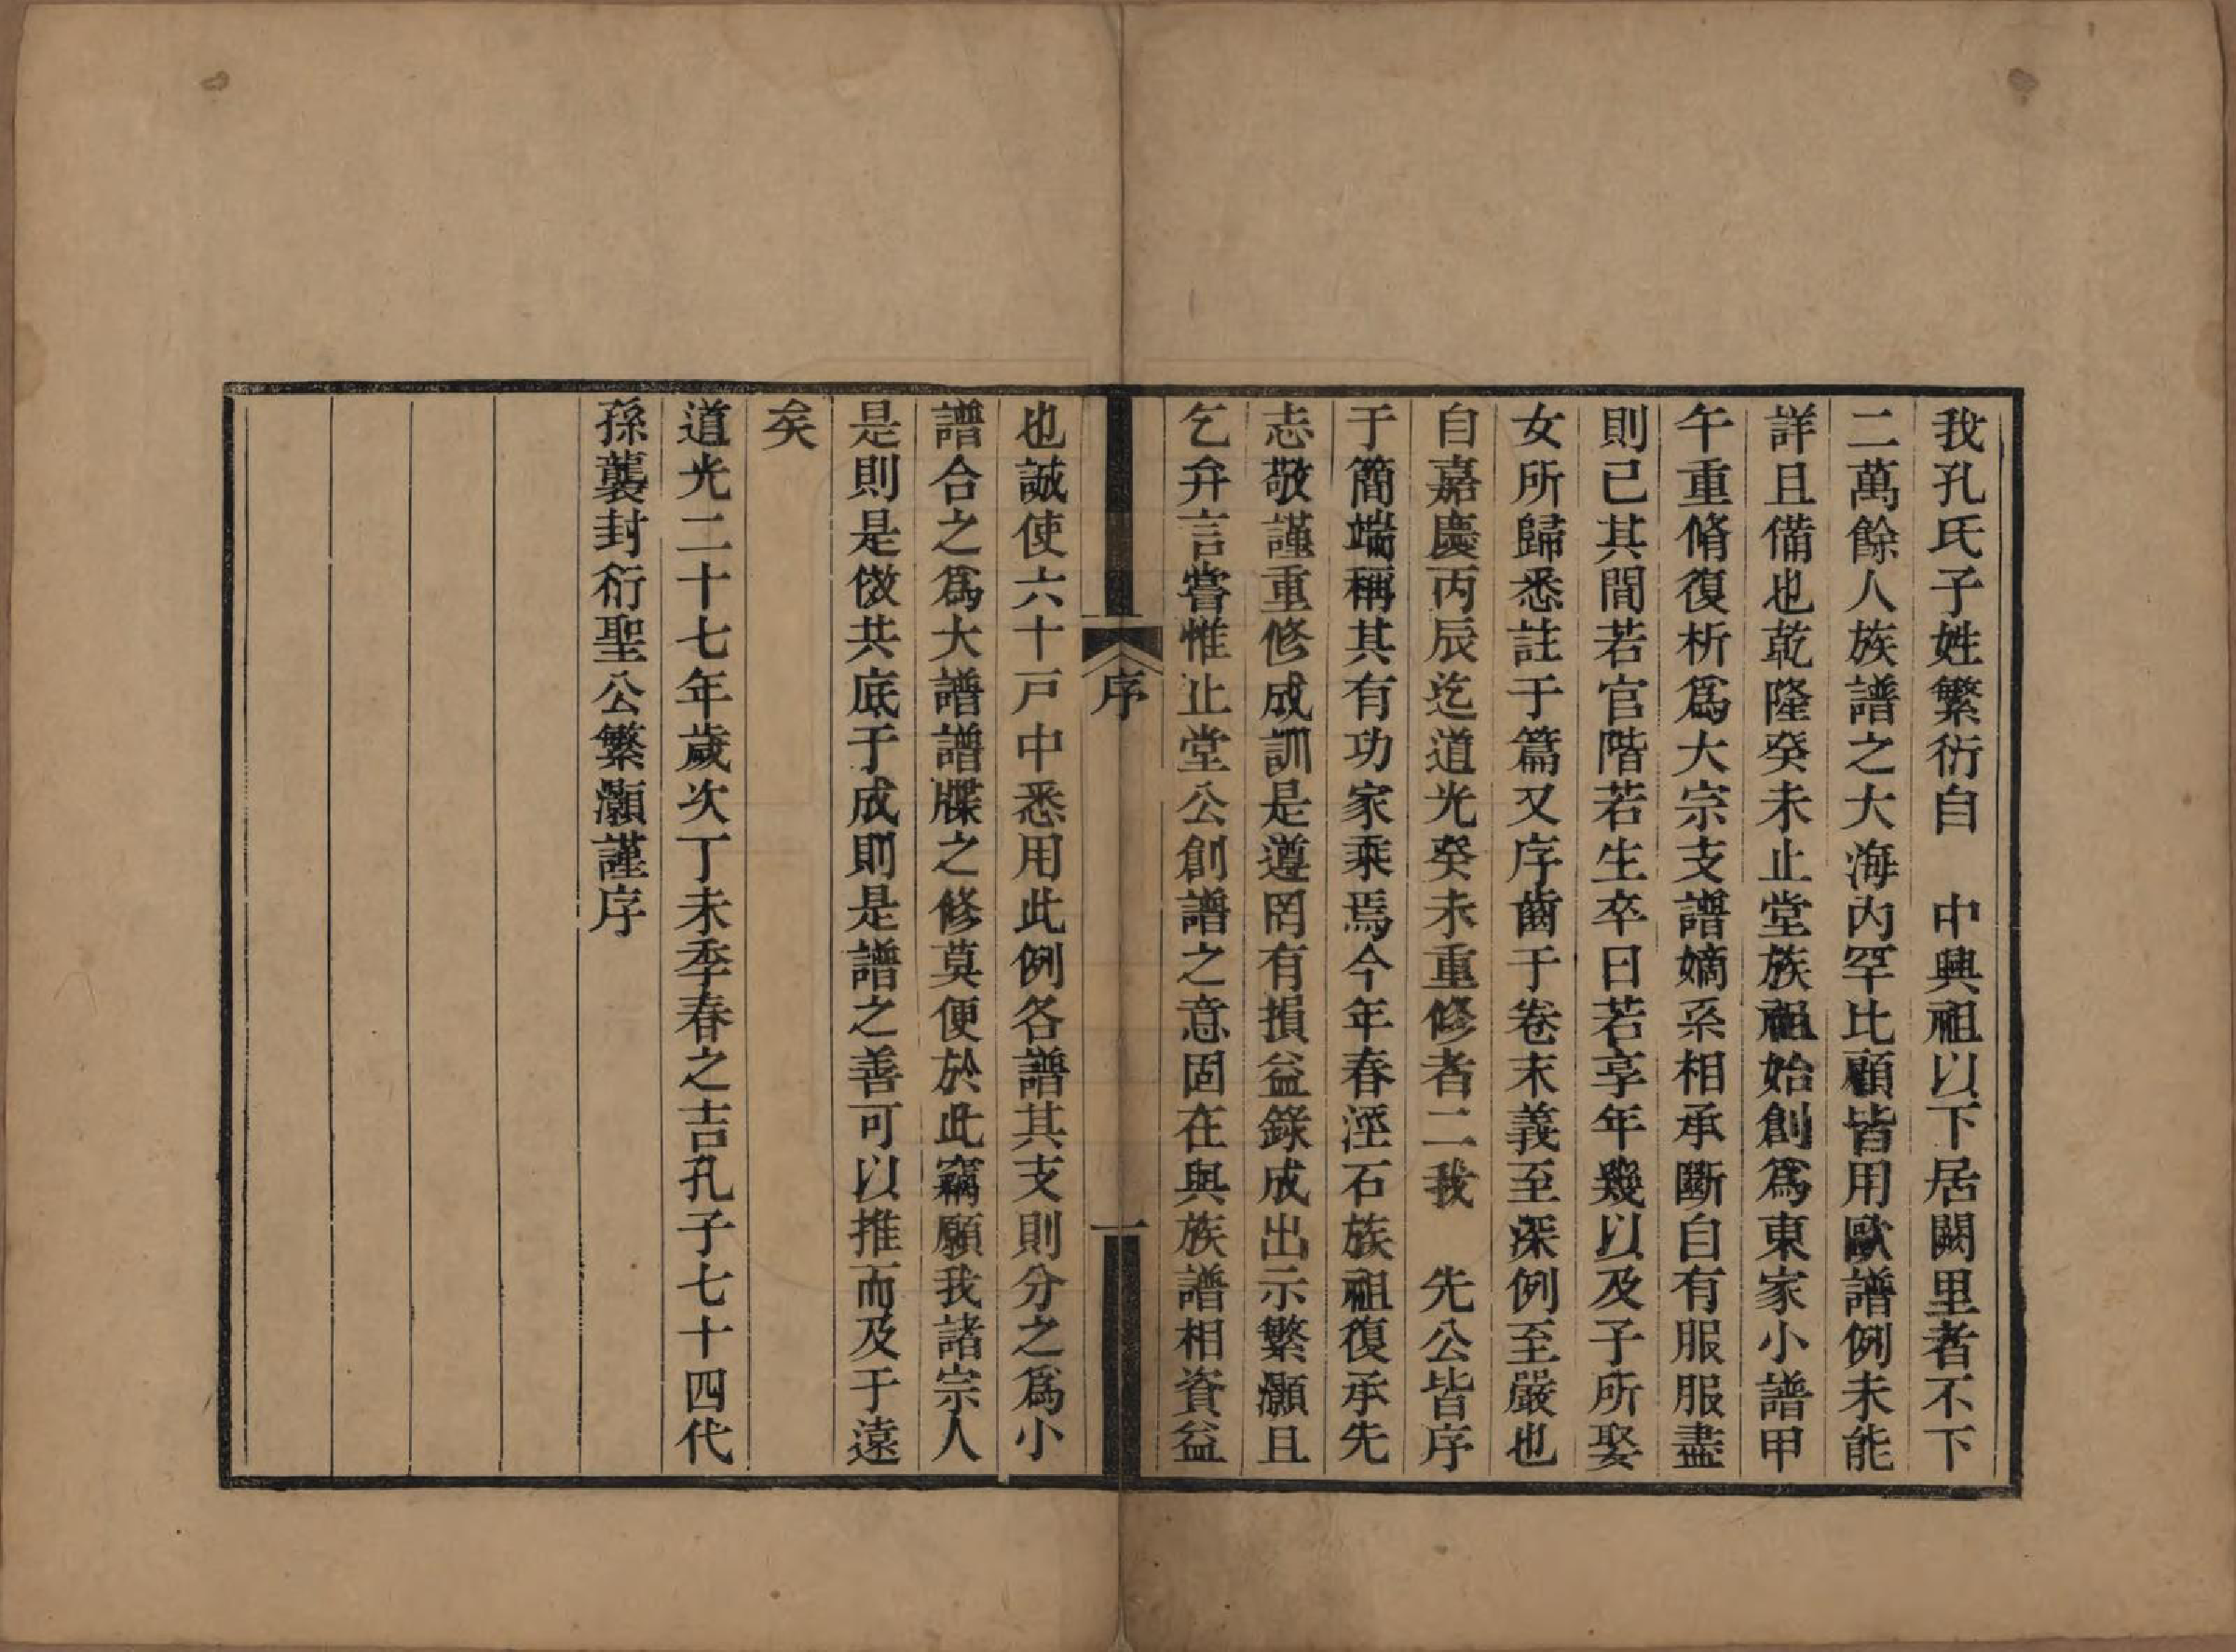 我孔氏子姓繁衍自　中興祖以下居闕里者不下
二萬餘人族譜之大海內罕比顧皆用歐譜例未能
詳且備也乾隆癸未止堂族祖始創爲東家小譜甲
午重脩復析爲大宗支譜嫡系相承斷自有服服盡
則已其間若官階若生卒日若享年幾以及子所娶
女所歸悉註于篇又序齒于卷末義至深例至嚴也
自嘉慶丙辰迄道光癸未重修者二我　先公皆序
于簡端稱其有功家乘焉今年春涇石族祖復承先
志敬謹重修成訓是遵罔有損益錄成出示繁灝且
乞弁言嘗惟止堂公創譜之意固在與族譜相資益
序
一
也誠使六十戸中悉用此例各譜其支則分之爲小
譜合之爲大譜譜牒之修莫便於此竊願我諸宗人
是則是傚共底于成則是譜之善可以推而及于遠
矣
道光二十七年歲次丁未季春之吉孔子七十四代
孫襲封衍聖公繁灝謹序